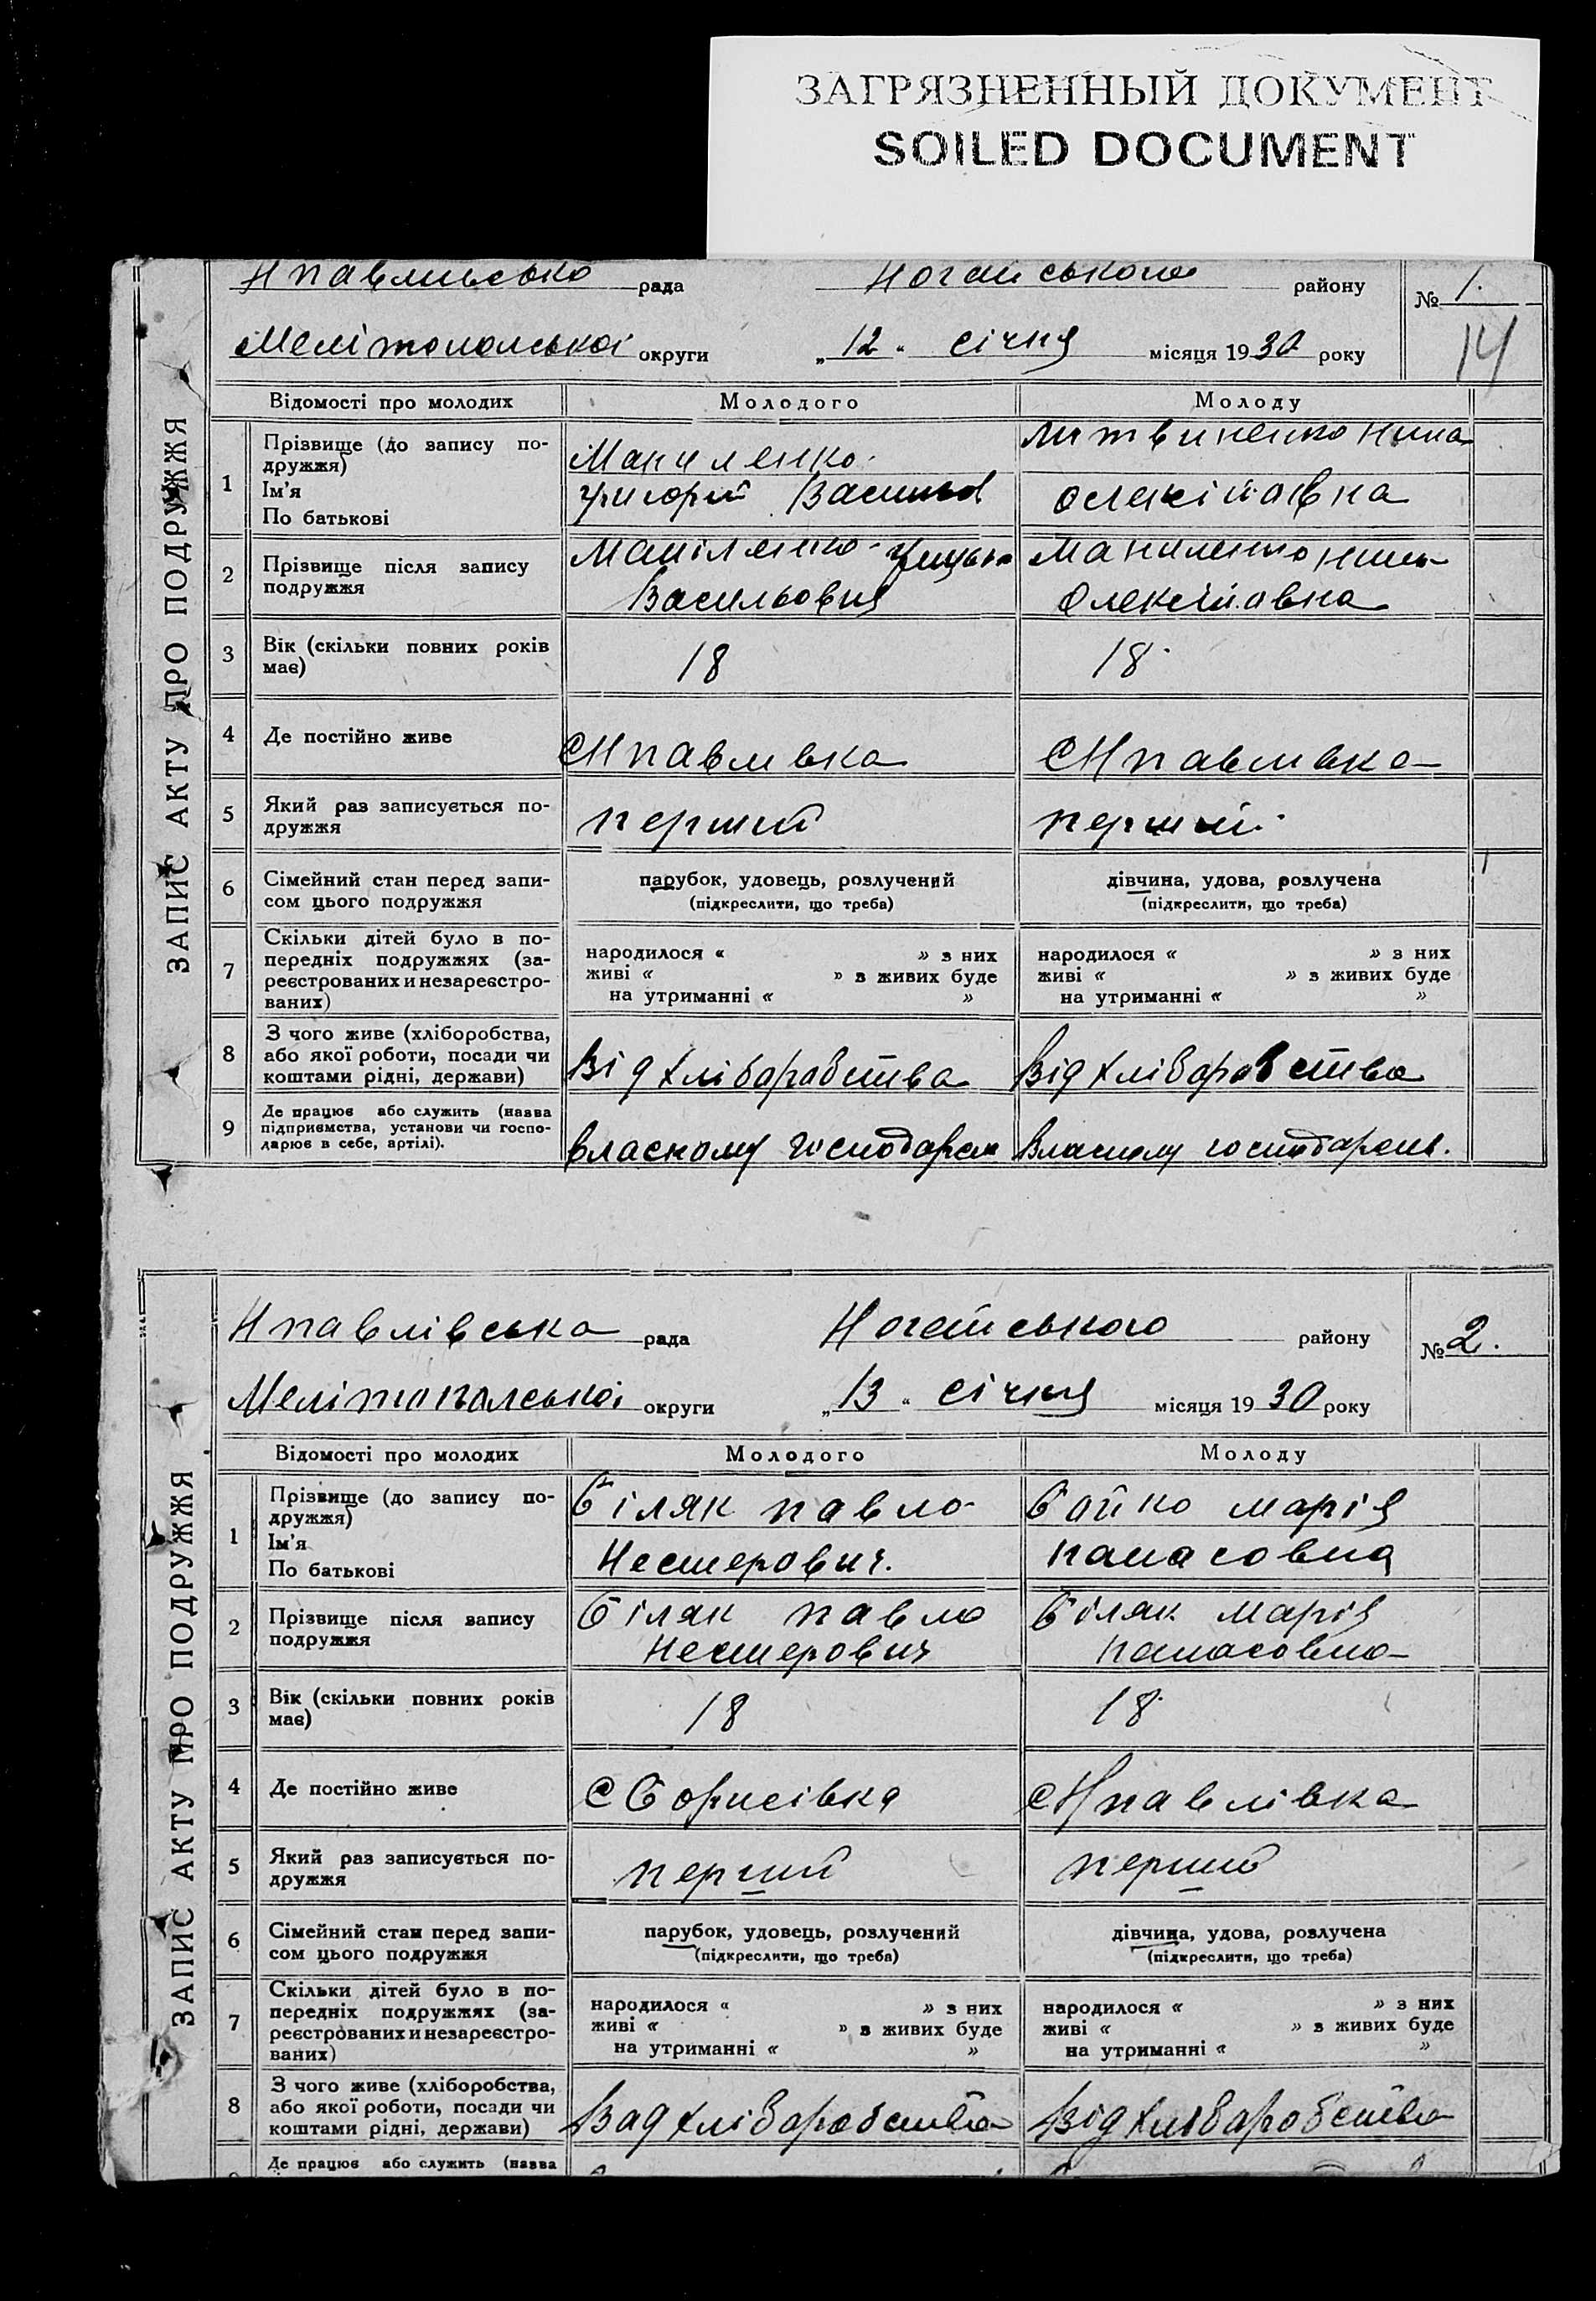 ЗАГРЯЗНЕННЫЙ ДОКУМЕНТ
SOILED DOCUMENT
ЗАПИС АКТУ ПРО ПОДРУЖЖЯ
рада Ногайського району № 1.
Мелітопольської округи „12“ січня місяця 1930 року
14
Відомості про молодих Молодого Молоду
1 Прізвище (до запису по-
дружжя)
Ім’я
По батькові
Литвиненко Нина
Олексійовка
2 Прізвище після запису
подружжя
Васильовия
Олексійовка
3 Вік (скільки повних років
має)
18 18
4 Де постійно живе
СНпавлівка СНпавлівка
5 Який раз записується по-
дружжя
перший перший
6 Сімейний стан перед запи-
сом цього подружжя
парубок, удовець, розлучений
(підкреслити, що треба)
дівчина, удова, розлучена
(підкреслити, що треба)
7 Скільки дітей було в по-
передніх подружжях (за-
реєстрованих и незареєстро-
ваних)
народилося « » з них
живі « » з живих буде
на утриманні « »
народилося « » з них
живі « » з живих буде
на утриманні « »
8 З чого живе (хліборобства,
або якої роботи, посади чи
коштами рідні, держави)
Від хліборобства Від хліборобства
9 Де працює або служить (назва
підприємства, установи чи госпо-
дарює в себе, артілі).
власному
ЗАПИС АКТУ ПРО ПОДРУЖЖЯ
Нпавлівська рада Ногайського району № 2.
Мелітопольської округи „13“ січня місяця 1930 року
Відомості про молодих Молодого Молоду
1 Прізвище (до запису по-
дружжя)
Ім’я
По батькові
Біляк Павло Бойко Марія
Нестерович. Панасовна
2 Прізвище після запису
подружжя
Біляк Павло Біляк Марія
Нестерович Панасовна
3 Вік (скільки повних років
має)
18 18
4 Де постійно живе
С Борисівка СНпавлівка
5 Який раз записується по-
дружжя
перший перший
6 Сімейний стан перед запи-
сом цього подружжя
парубок, удовець, розлучений
(підкреслити, що треба)
дівчина, удова, розлучена
(підкреслити, що треба)
7 Скільки дітей було в по-
передніх подружжях (за-
реєстрованих и незареєстро-
ваних)
народилося « » з них
живі « » з живих буде
на утриманні « »
народилося « » з них
живі « » з живих буде
на утриманні « »
8 З чого живе (хліборобства,
або якої роботи, посади чи
коштами рідні, держави)
Вад хліборобства Від хліборобства
Де працює або служить (назва